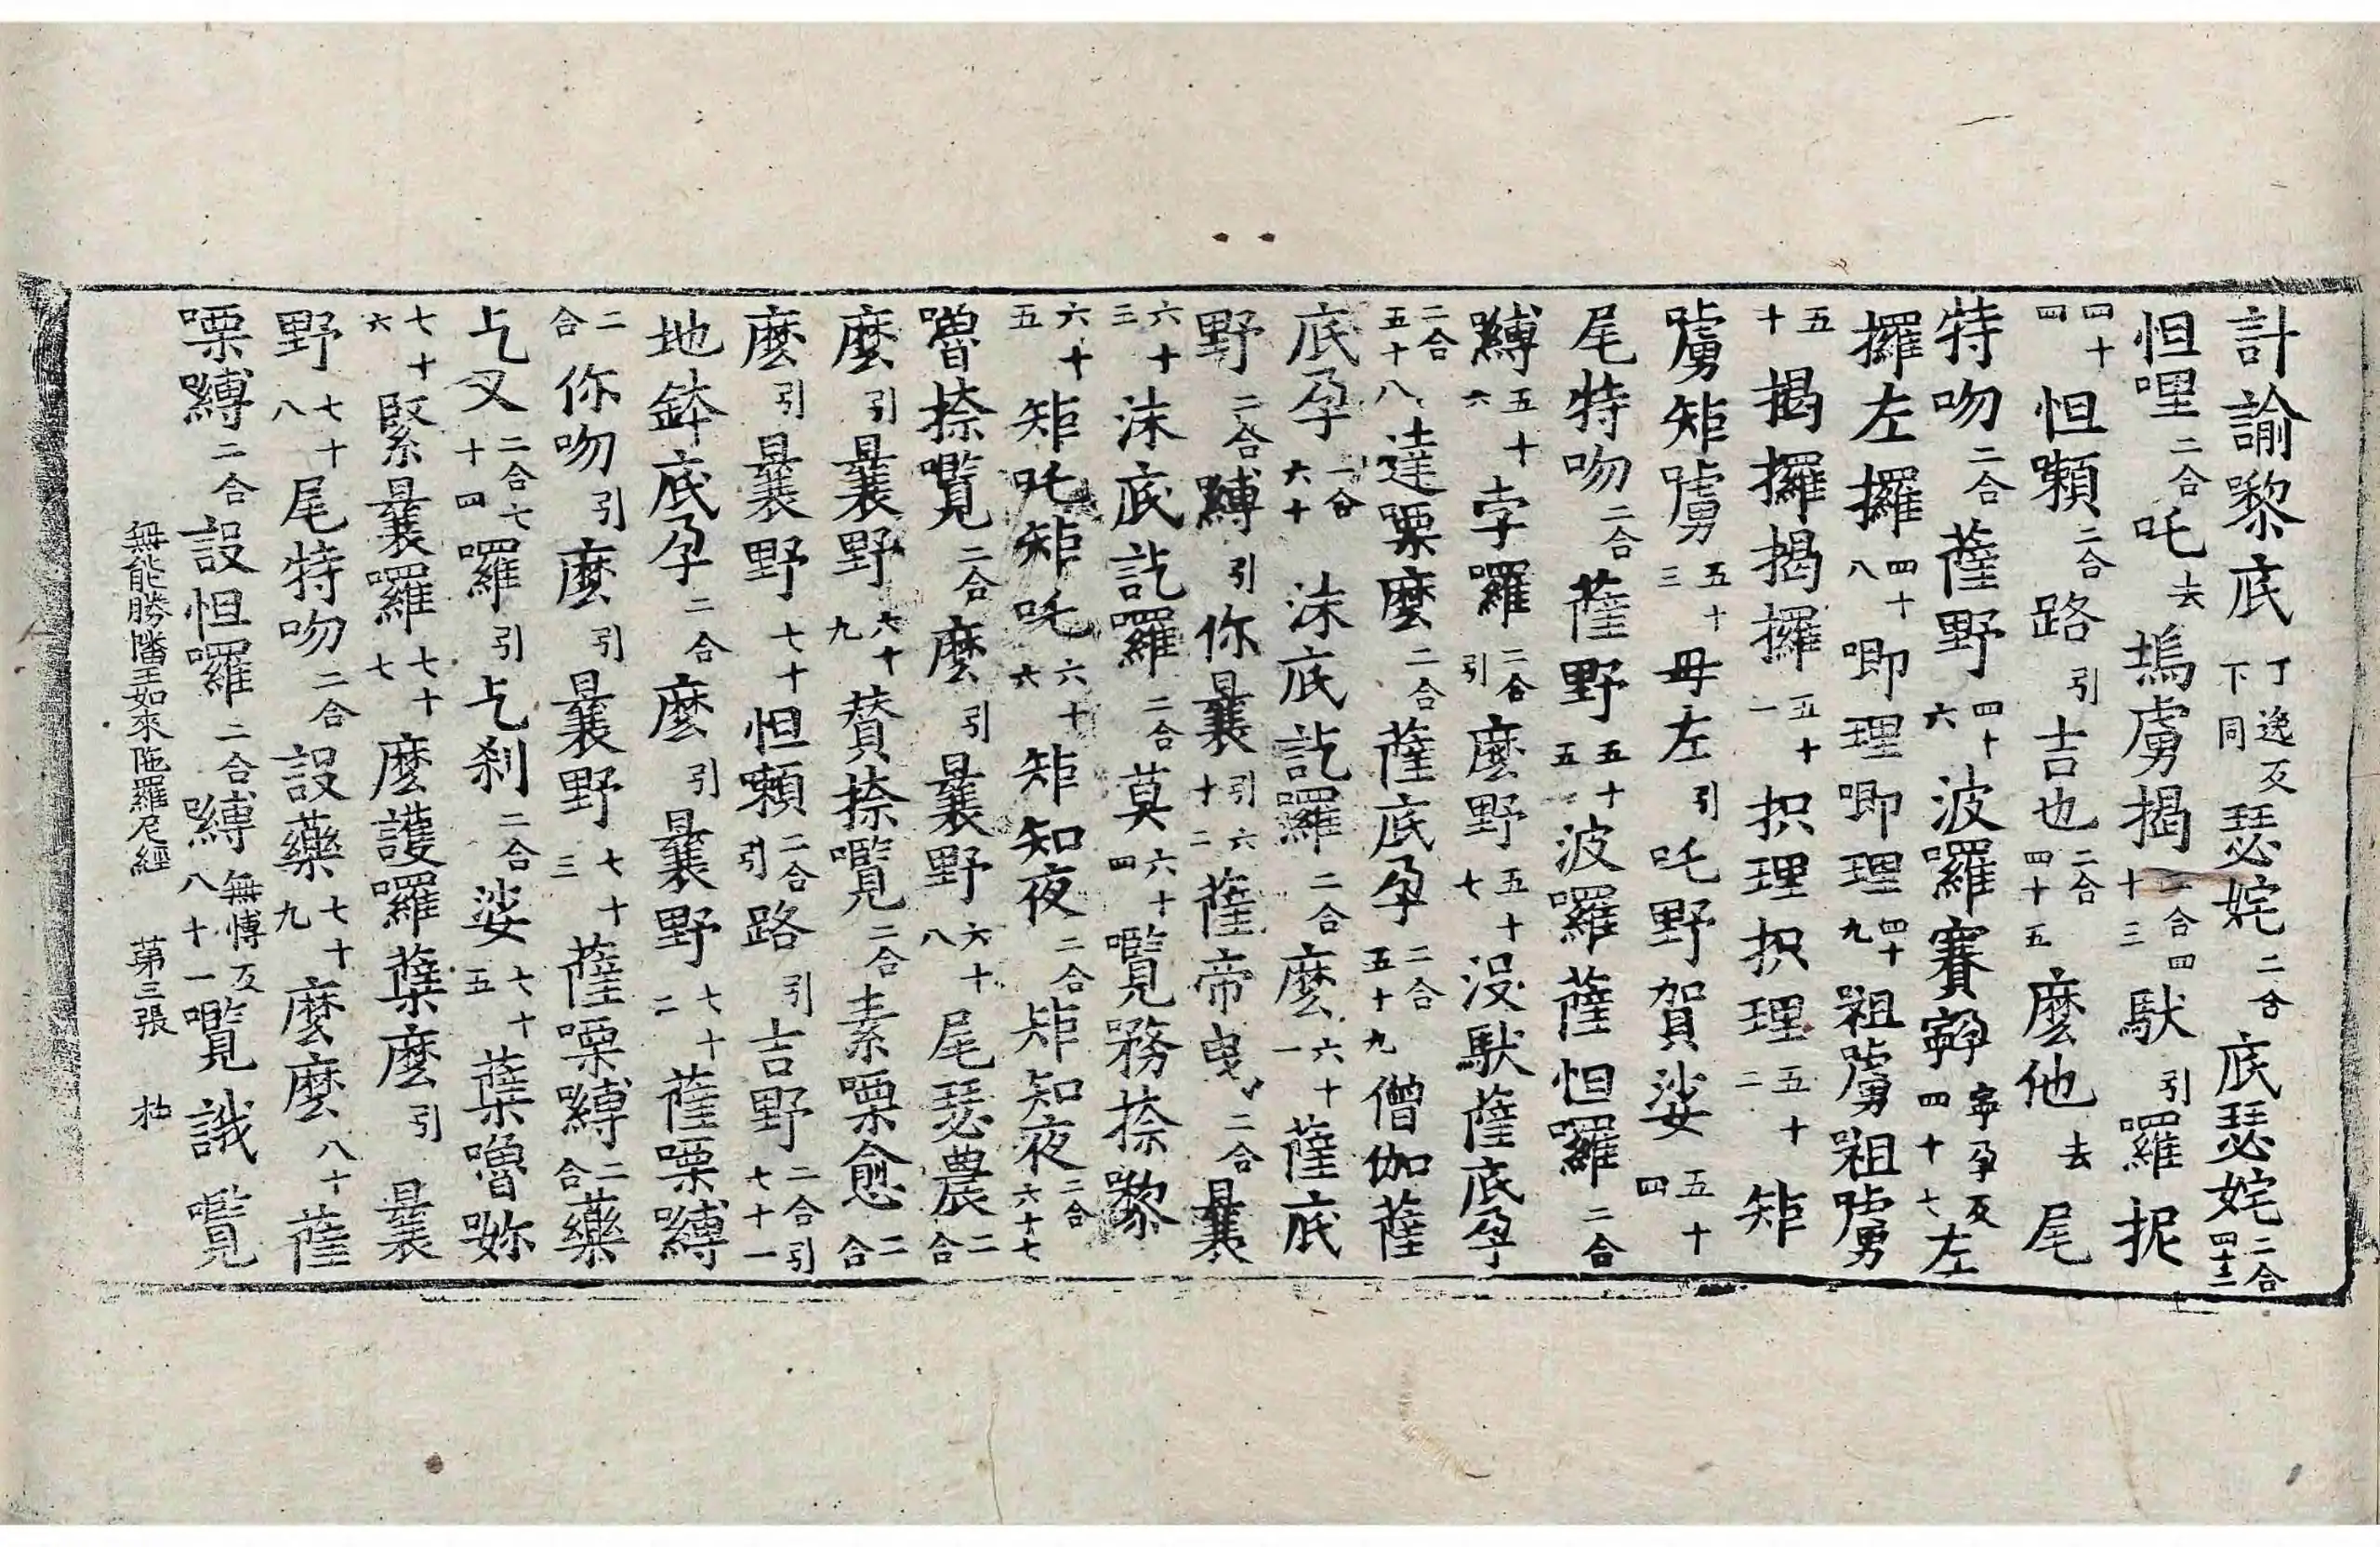 計諭黎底丁逸反下同瑟姹二合底瑟姹二合四十二
怛哩二合吒去塢虜揭二合四十三馱引囉抳
四十四怛嚩二合路引吉也二合四十五麼他去尾
特吻二合薩野四十六波囉賽寧孕反四十七左
攞左攞四十八唧理唧理四十九祖嚧祖嚧
五十揭攞揭攞五十一抧理抧理五十二矩
嚧矩嚧五十三毋左引吒野賀娑五十四
尾特吻二合薩野五十五波囉薩怛囉二合
嚩五十六孛囉二合引麼野五十七沒馱薩底孕
二合五十八達㗚麼二合薩底孕二合五十九僧伽薩
底孕二合六十沫底訖囉二合麼六十一薩底
野二合嚩引你曩引六十二薩帝曳二合曩
六十三沫底訖囉二合莫六十四囕務捺黎
六十五矩吒矩吒六十六矩知夜二合矩知夜二合六十七
嚕捺囕二合麼引曩野六十八尾瑟農二合
麼引曩野六十九贊捺囕二合素㗚愈二合
麼引曩野七十怛嚩二合引路引吉野二合引七十一
地鉢底孕二合麼引曩野七十二薩㗚嚩
二合你吻引麼引曩野七十三薩㗚嚩二合藥
乞叉二合七十四囉引乞刹二合娑七十五蘖嚕妳
七十六緊曩囉七十七麼護囉蘖麼引曩
野七十八尾特吻二合設藥七十九麼麼八十薩
㗚嚩二合設怛囉二合嚩無愽反八十一囕誐囕
無能勝幡王如來陁羅尼經　第三張　柏